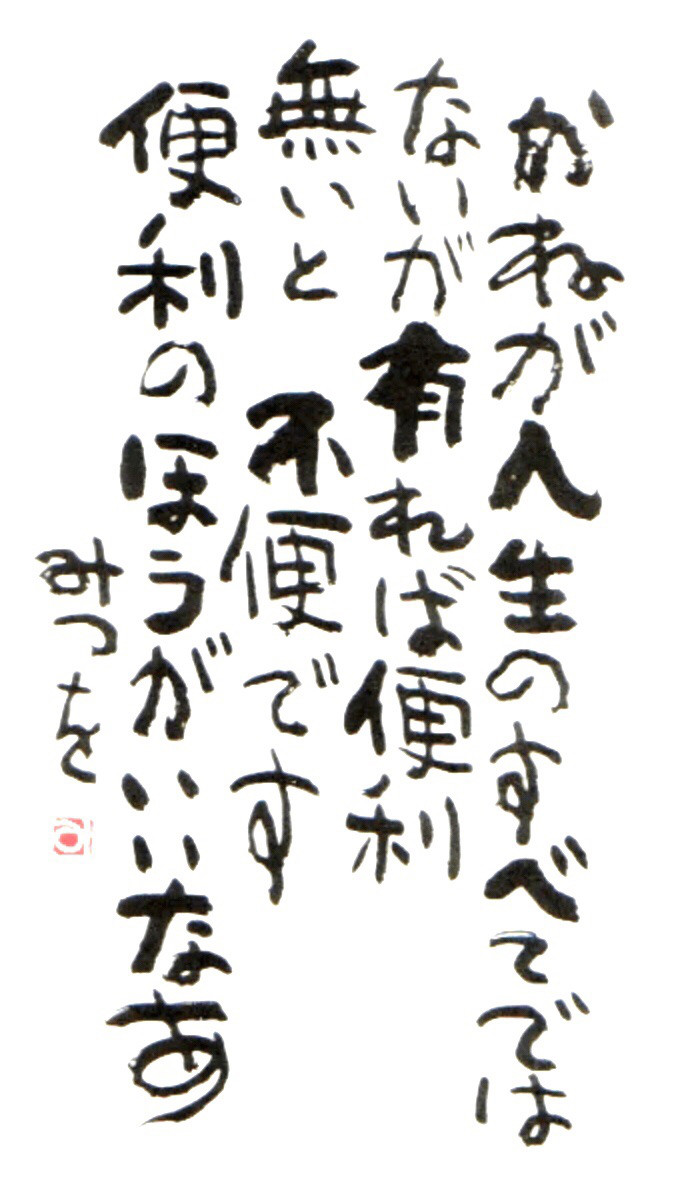 かねが人生のすべてでは
ないが有れば便利
無いと不便です
便利のほうがいいなあ
みつを